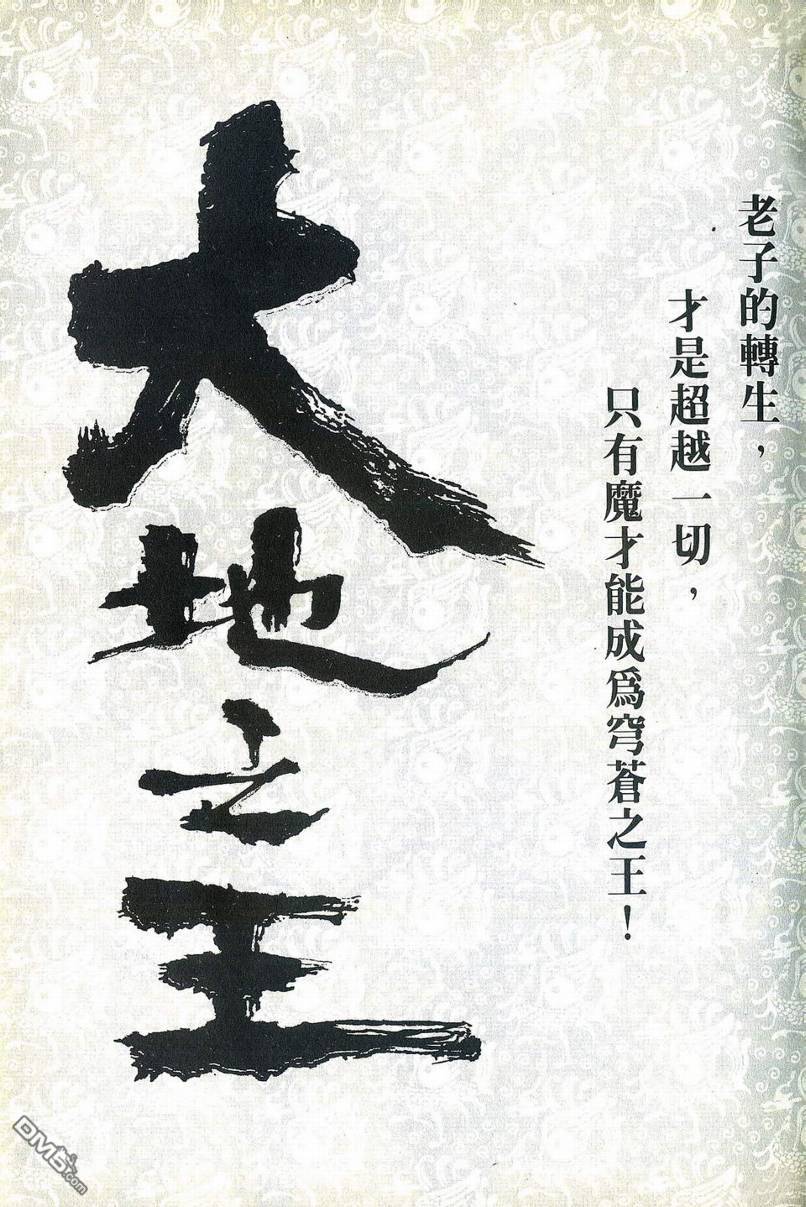 老子的轉生，
才是超越一切，
只有魔才能成爲穹蒼之王！
大地之王
DM5.com